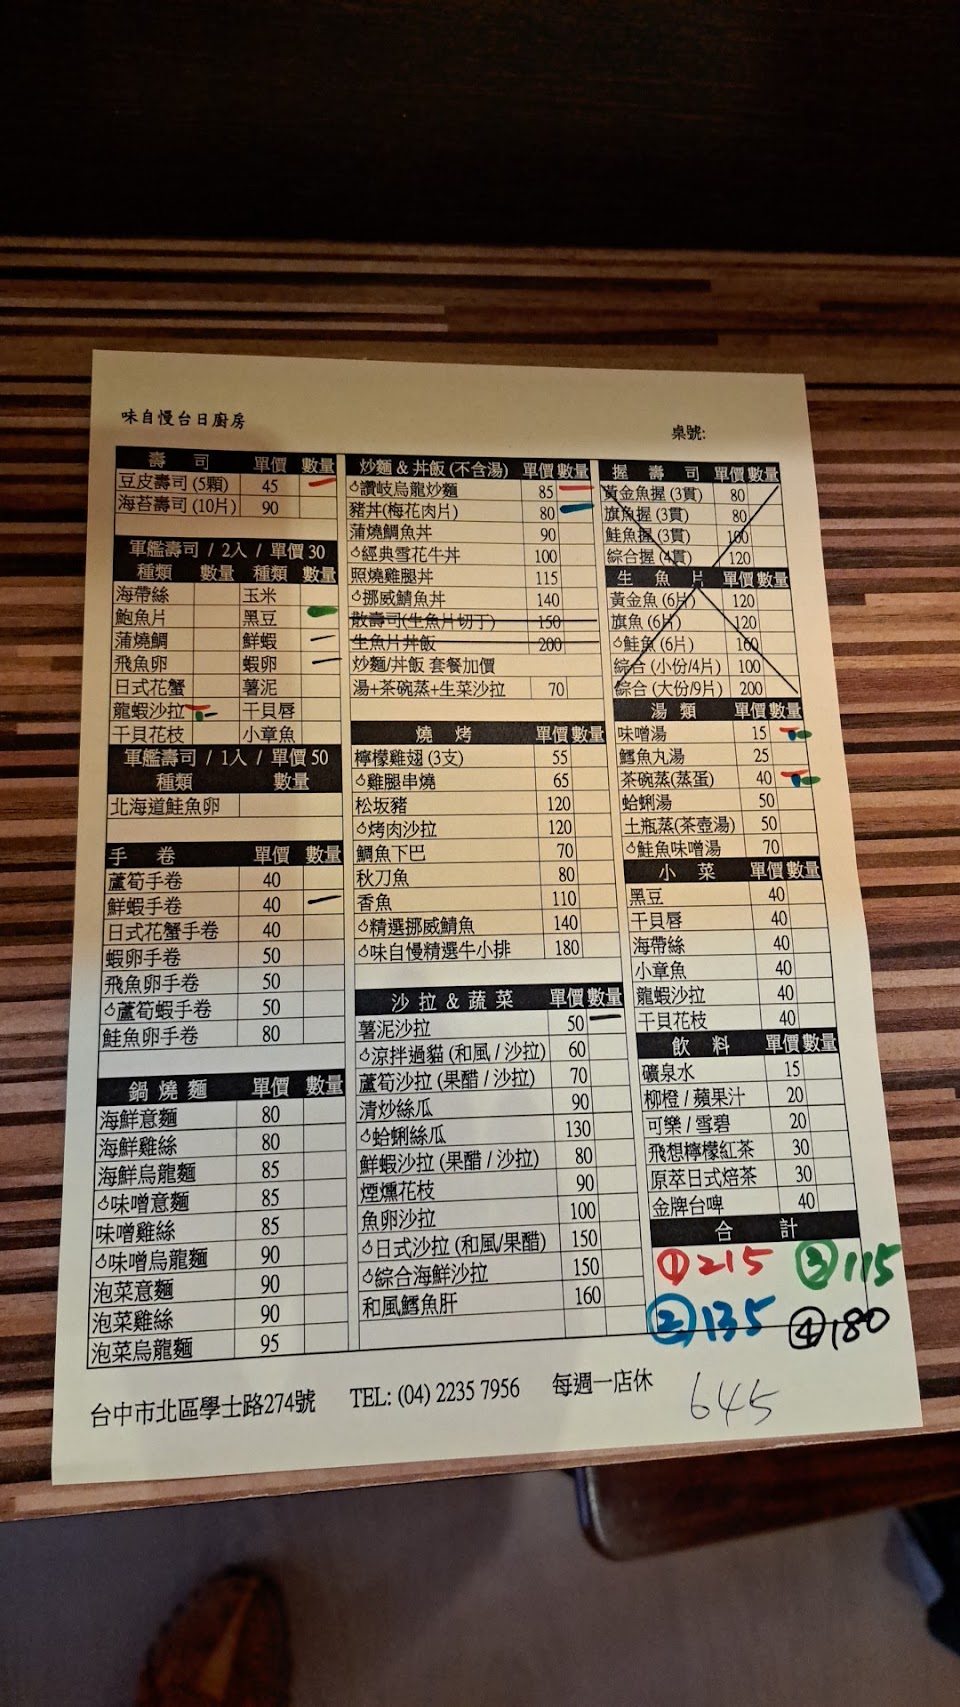 味自慢台日廚房
桌號:
壽 司 單價 數量
豆皮壽司 (5顆) 45
海苔壽司 (10片) 90
軍艦壽司 / 2入 / 單價 30
種類 數量 種類 數量
海帶絲 玉米
鮑魚片 黑豆
蒲燒鯛 鮮蝦
飛魚卵 蝦卵
日式花蟹 薯泥
龍蝦沙拉 干貝唇
干貝花枝 小章魚
軍艦壽司 / 1入 / 單價 50
種類 數量
北海道鮭魚卵
手 卷 單價 數量
蘆筍手卷 40
鮮蝦手卷 40
日式花蟹手卷 40
蝦卵手卷 50
飛魚卵手卷 50
蘆筍蝦手卷 50
鮭魚卵手卷 80
鍋 燒 麵 單價 數量
海鮮意麵 80
海鮮雞絲 80
海鮮烏龍麵 85
味噌意麵 85
味噌雞絲 85
味噌烏龍麵 90
泡菜意麵 90
泡菜雞絲 90
泡菜烏龍麵 95
炒麵 & 丼飯 (不含湯) 單價 數量
讚岐烏龍炒麵 85
豬丼(梅花肉片) 80
蒲燒鯛魚丼 90
經典雪花牛丼 100
照燒雞腿丼 115
挪威鯖魚丼 140
散壽司(生魚片切丁) 150
生魚片丼飯 200
炒麵/丼飯 套餐加價
湯+茶碗蒸+生菜沙拉 70
燒 烤 單價 數量
檸檬雞翅 (3支) 55
雞腿串燒 65
松坂豬 120
烤肉沙拉 120
鯛魚下巴 70
秋刀魚 80
香魚 110
精選挪威鯖魚 140
味自慢精選牛小排 180
沙 拉 & 蔬 菜 單價 數量
薯泥沙拉 50
涼拌過貓 (和風 / 沙拉) 60
蘆筍沙拉 (果醋 / 沙拉) 70
清炒絲瓜 90
蛤蜊絲瓜 130
鮮蝦沙拉 (果醋 / 沙拉) 80
煙燻花枝 90
魚卵沙拉 100
日式沙拉 (和風/果醋) 150
綜合海鮮沙拉 150
和風鱈魚肝 160
握 壽 司 單價 數量
黃金魚握 (3貫) 80
旗魚握 (3貫) 80
鮭魚握 (3貫) 100
綜合握 (4貫) 120
生 魚 片 單價 數量
黃金魚 (6片) 120
旗魚 (6片) 120
鮭魚 (6片) 160
綜合 (小份/4片) 100
綜合 (大份/9片) 200
湯 類 單價 數量
味噌湯 15
鱈魚丸湯 25
茶碗蒸(蒸蛋) 40
蛤蜊湯 50
土瓶蒸(茶壺湯) 50
鮭魚味噌湯 70
小 菜 單價 數量
黑豆 40
干貝唇 40
海帶絲 40
小章魚 40
龍蝦沙拉 40
干貝花枝 40
飲 料 單價 數量
礦泉水 15
柳橙 / 蘋果汁 20
可樂 / 雪碧 20
飛想檸檬紅茶 30
原萃日式焙茶 30
金牌台啤 40
合 計
① 215 ③ 115
② 135 ④ 180
台中市北區學士路274號 TEL: (04) 2235 7956 每週一店休
645